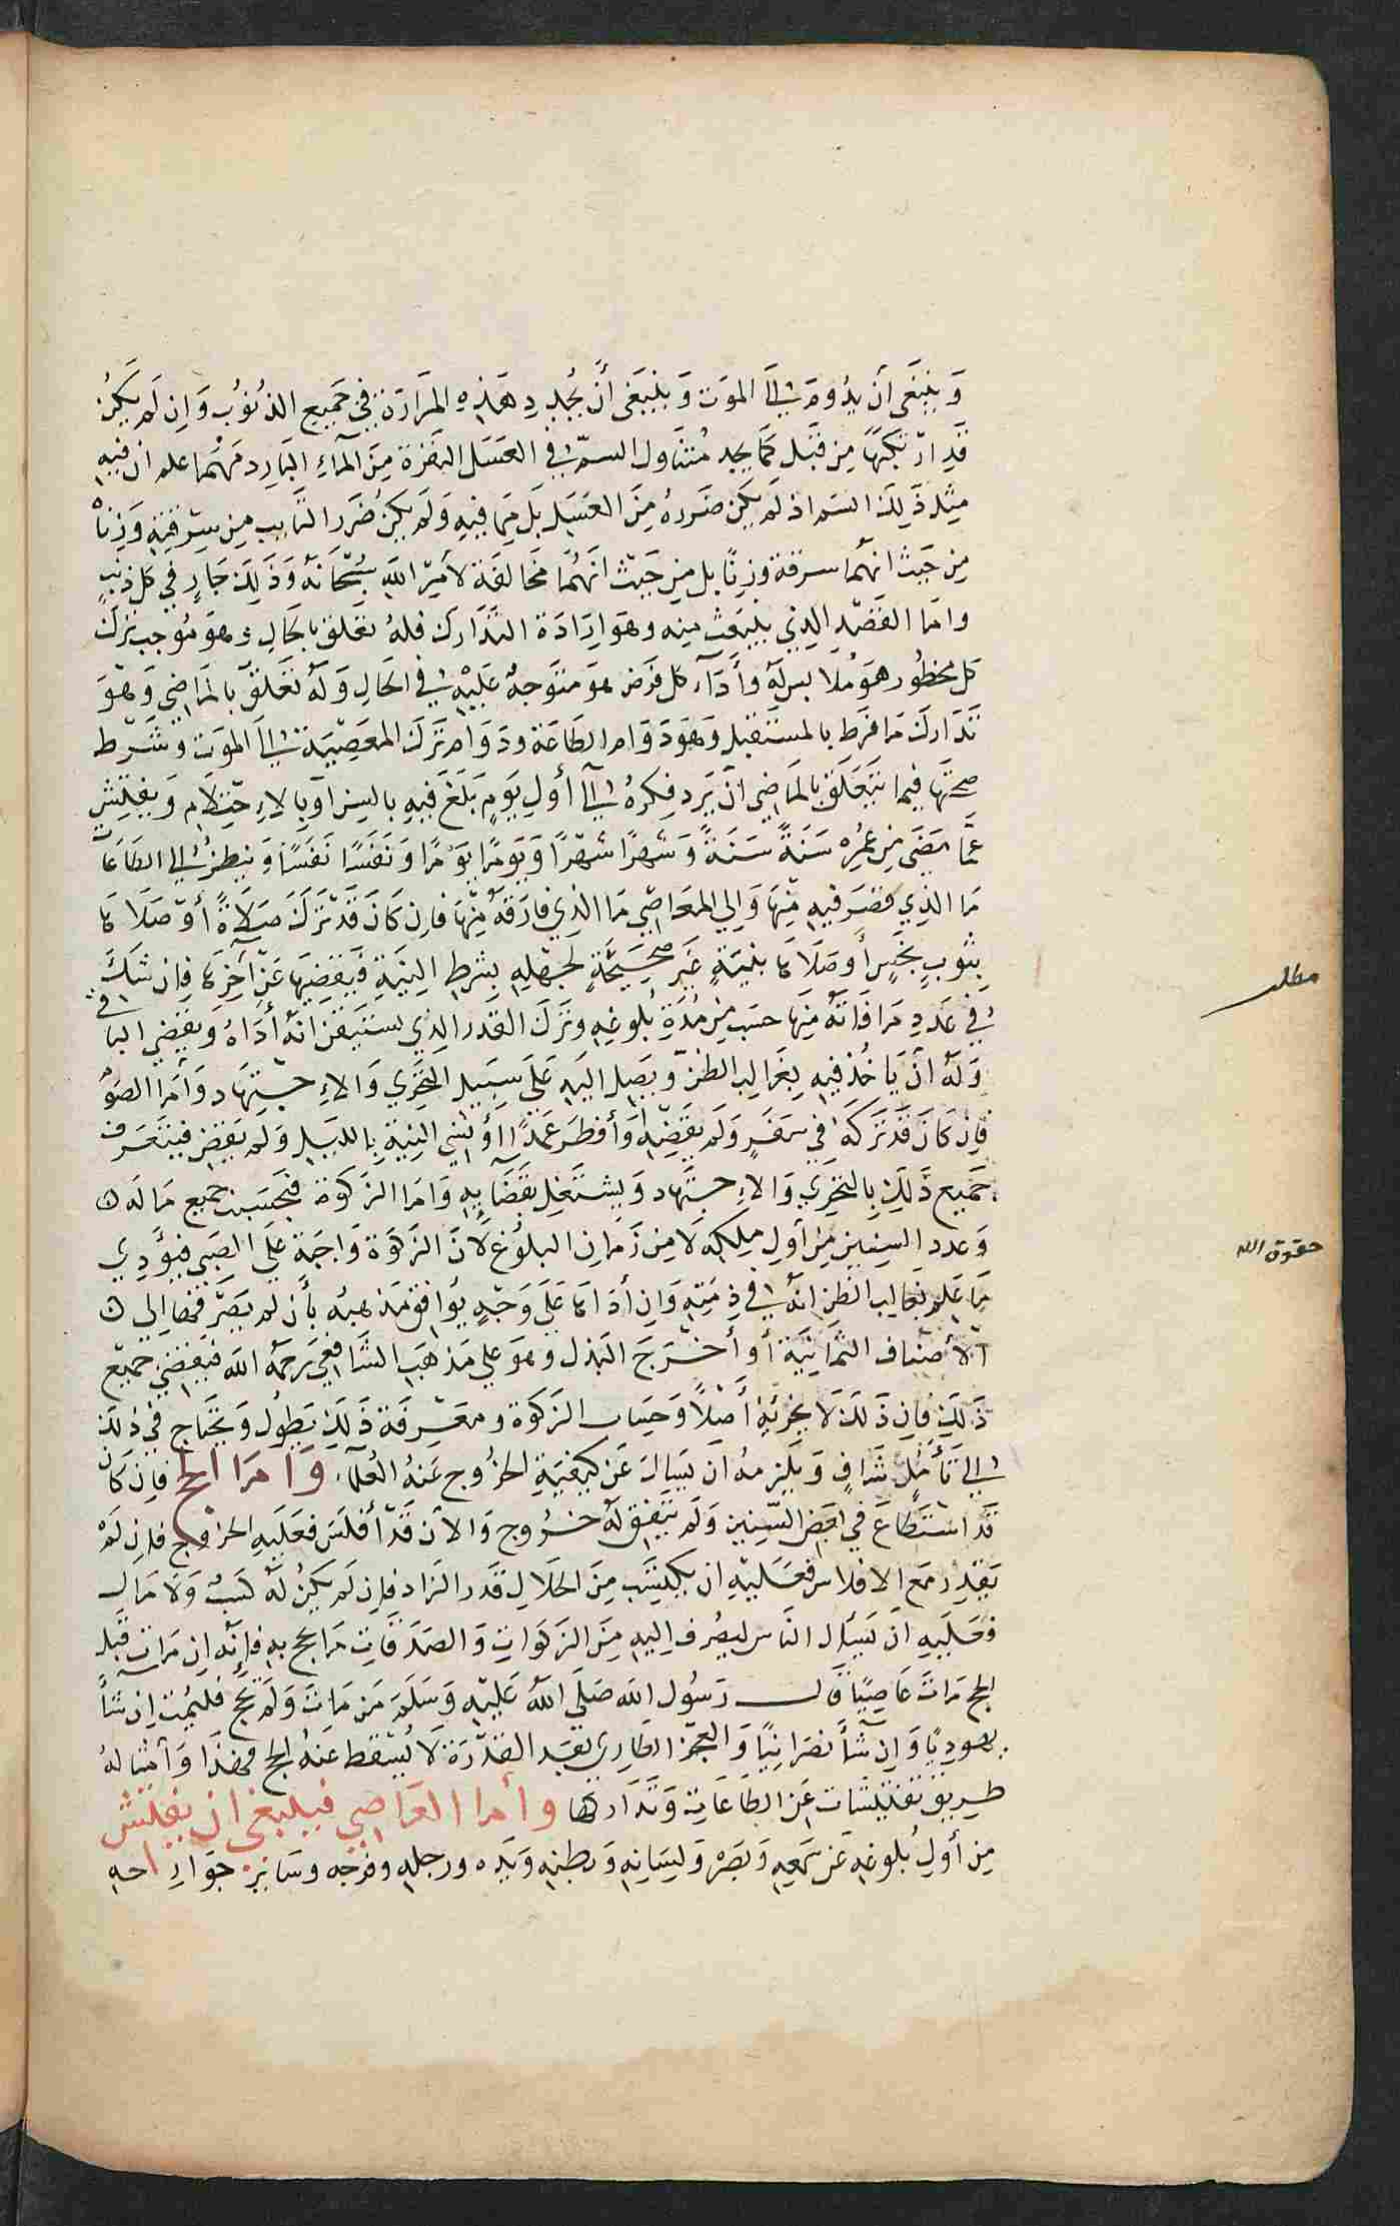 وَينبَغي أن يدُومَ إلَى الموَت وَينبَغي أنَ يُجد دِ هَذِهِ المرَارَة في جَميع الذنُوُب وَإن لَم يَكنُ
قَدِ ارتكبَهَا مِن قَبَل كمَا يجد مُتنَاول السمّ في العَسَل النفرة مِنَ الَمآءِ البَارِد مَهْمَا علم ان فيهِ
مِثل ذَلِكَ السَم اذ لَم يَكَن ضَررهُ مِنَ العسَل بَل ممَا فيهِ وَلَم يكنُ ضَرر التَايب مِن سِرقتِهِ وَزِناهْ
مِن حَيث انهُما سرقة وزنًا بل مِن حَيث انَهُما مخَالفَة لأمَرِ اللَه سُبْحَانَهُ وَذلِكَ جَارٍ في كل ذنبٍ
وامَا القَصْد الذِي ينبَعث مِنه وهوَ ارَادَة التدَارك فلَهُ تعَلق بالحَالِ وهوَ مُوجب تركَ
كل محظُور هوَ مُلا بس لهَ وأدَآء كل فرَض هوَ متوَجهٌ عَليْهِ في الحَالِ وَلَهُ تعَلقَ بالماضِي وَهوَ
تدَاركَ مَا فرَط بالمستَقبل وَهوَ دَوَام الطَاعَة ودَوَام ترَكَ المعَصْيَة إلَى الموَت وشَرط
صِحتهَا فيما يتَعَلق بالماضِي أن يرَد فِكرهُ إلَى أولِ يَومٍ بَلَغَ فيهِ بالسِنِ أوَبالاءِحتِلاَم وَيفَتِش
عَمَّا مَضَى مِن عُمِرُه سَنَةً سَنَةً وَشَهرًا شهرًا وَيَومًا يَومًا وَنفَسًا نَفَسًا وَينظرُ إلى الطاعَات
مَا الذِي قَصَر فيهِ مِنهَا وَإلي المعَاصِي مَا الذِي قارَفهُ مِنهَا فإن كَانَ قَدْ تَركَ صَلاَةً أوَ صَلاَ ها
بِثوبٍ نجَسٍ أوصَلاَ ها بنيَةٍ غَير صَحِيْحَةٍ لجهَلهِ بشرطِ النِيَةِ فَيقضِيهَا عَن آخِرها فإن شَكَّ
في عَددِ مَا فَاتهُ مِنهَا حسَب مِن مُدَةِ بُلوغهِ وترَكَ القَدر الذِي يستَيقن انهُ أدَاهُ وَيقضِي البَاقى
وَلَهُ أن يَا خُذ فيهِ بِغَالِب الظنّ وَيصِل اليَه عَلَى سَبيل التحَرِي وَالاءِجتِهَاد وَأمَا الصَومْ
فإن كَانَ قَد ترَكهُ في سَفَرٍ وَلَم يَقضِهِ أوَأفطَر عَمَدًا أوَ نَسِيَ النِيَةِ بِالليَلِ وَلَم يَقضِ فيتَعرَف
جَميع ذَلِكَ بِالتحَرِي وَالاءِجتهَاد وَيشتَغِل بقَضَايهِ وَامَا الزكَوة فيَحسَب جَميع مَا لَه
وَعددِ السِنِين مِن أولِ مِلكِهِ لاَ مِن زَمَان البلوُغ لأنَّ الزكَوَة وَاجبَة عَلَى الصَبي فيؤَدِي
مَا عَلِمَ بغالب الظَنِ انَهُ في ذِمَتِهِ وَإن أدَاهَا عَلَى وَجهٍ يُوَافق مَذهبهُ بأن لم يصَرفها إلى
الأصنَاف الثمَانيَة أوَ أخرَجَ البَدل وهوَ علي مَذهَب الشَافعي رَحمَهُ اللَه فيَقضِي جميعَ
ذَلِكَ فإن ذَلكَ لاَ يُجزِئهِ أصَلاً وَحسَاب الزكَوَة ومعَرفَة ذَلِكَ يَطوُل وَيَحتَاج في ذلكَ
إلى تَأمُلٍ شَافٍ وَيَلزمهُ أن يَسَالَ عَن كيَفيَةِ الخرُوج عَنهُ العُلَمآءَ وَامَا الحج فإن كَانَ
قَد استَطاعَ في بعَض السِنِين وَلَم يَتفِق لَهُ خرُوج وَالآن قَد أفلَسَ فعَلَيهِ الخروج فإن لَم
يَقدِر مَع الافلاس فعَليَهِ ان يكتسَب مِنَ الحَلالِ قَدَر الزَاد فإن لَم يَكنُ لَهُ كسَبٌ وَلاَ مَال
فعَلَيهِ ان يَسَأل النَاس ليصُرف اليهِ مِنَ الزكوَاتِ وَالصَدَقاتِ مَا يحج بهِ فإنهُ ان مَات قَبل
الحج مَاتَ عَاصِيًا قَالَ رَسُول اللَه صَلَى اللَهُ عَليْهِ وَسَلَّمَ مَن مَاتَ وَلَم يَحُجَّ فليمُت إن شَأَ
يهودِيًا وَإن شَأَ نصَرَانيًا وَالعَجز الطَارِي بَعد القدْرَة لاَ يُسقط عَنهُ الحج فهذَا وَأمثاله
طريق تفتيشَات عَن الطاعَات وَتَدَاركها وأما المعَاصِي فينبغي ان يفتش
مِن أولِ بُلوغهِ عَن سَمعهِ وَبصَرهْ وَليسَانهِ وَبَطنهِ وَيَدِه ورجلهِ وفَرجه وسَايرِ جوَارِاحه
مطلب
حقوق الله